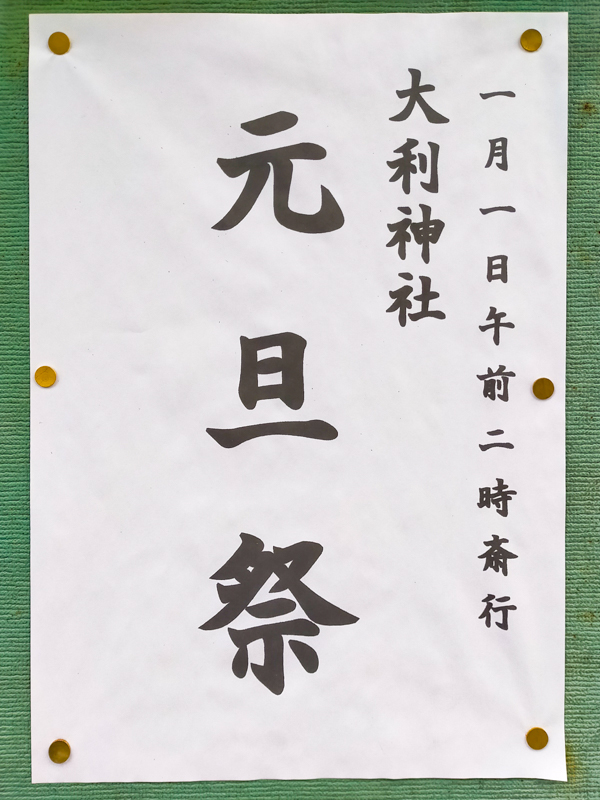 一月一日午前二時斎行
大利神社
元旦祭